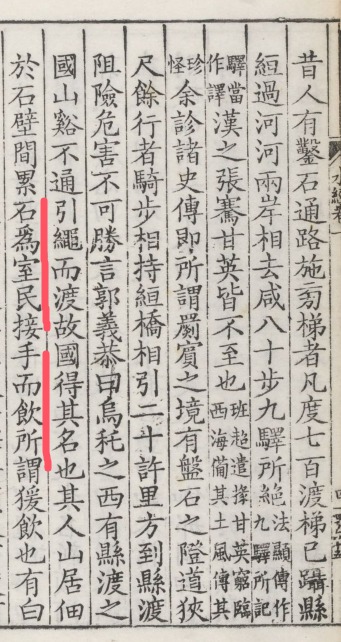 昔人有鑿石通路施㫄梯者凡度七百渡梯已躡縣
絙過河河兩岸相去咸八十步九驛所絶法顯傳作九驛所記
驛當作譯漢之張騫甘英皆不至也班超遣掾甘英窮臨西海備其土風傳其
珍怪余診諸史傳即所謂罽賓之境有盤石之隥道狹
尺餘行者騎步相持絙橋相引二十許里方到縣渡
阻險危害不可勝言郭義恭曰烏秅之西有縣渡之
國山谿不通引繩而渡故國得其名也其人山居佃
於石壁間累石爲室民接手而飲所謂猨飲也有白